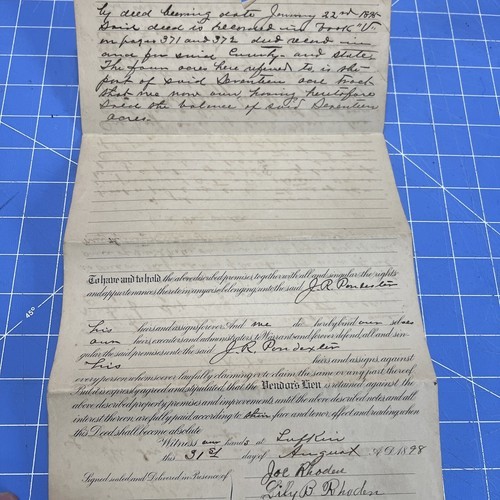 by deed bearing date January 22nd 189
Said deed is recorded in book "V"
on pages 371 and 372 deed record in
and for said County and State
The four acre here referred to is the
part of said Seventeen acre tract
that we now own having heretofore
sold the balance of said Seventeen
acres.
To have and to hold, the above described premises, together with all and singular the rights
and appurtenances thereto in anywise belonging, unto the said J. R. Pondexter
his heirs and assigns forever. And we do hereby bind our selves
our heirs, executors and administrators to Warrant and forever defend, all and sin-
gular the said premises unto the said J. R. Pondexter
his heirs and assigns, against
every person whomsoever lawfully claiming or to claim the same or any part thereof.
But it is expressly agreed and stipulated, that the Vendor's Lien is retained against the
above described property, premises and improvements, until the above described notes, and all
interest thereon, are fully paid, according to their face and tenor, effect and reading, when
this Deed shall become absolute
Witness our hands at Lufkin
this 31st day of August A.D. 1898
Signed, sealed and Delivered in Presence of
Joe Rhoden
Lily B Rhoden
45°